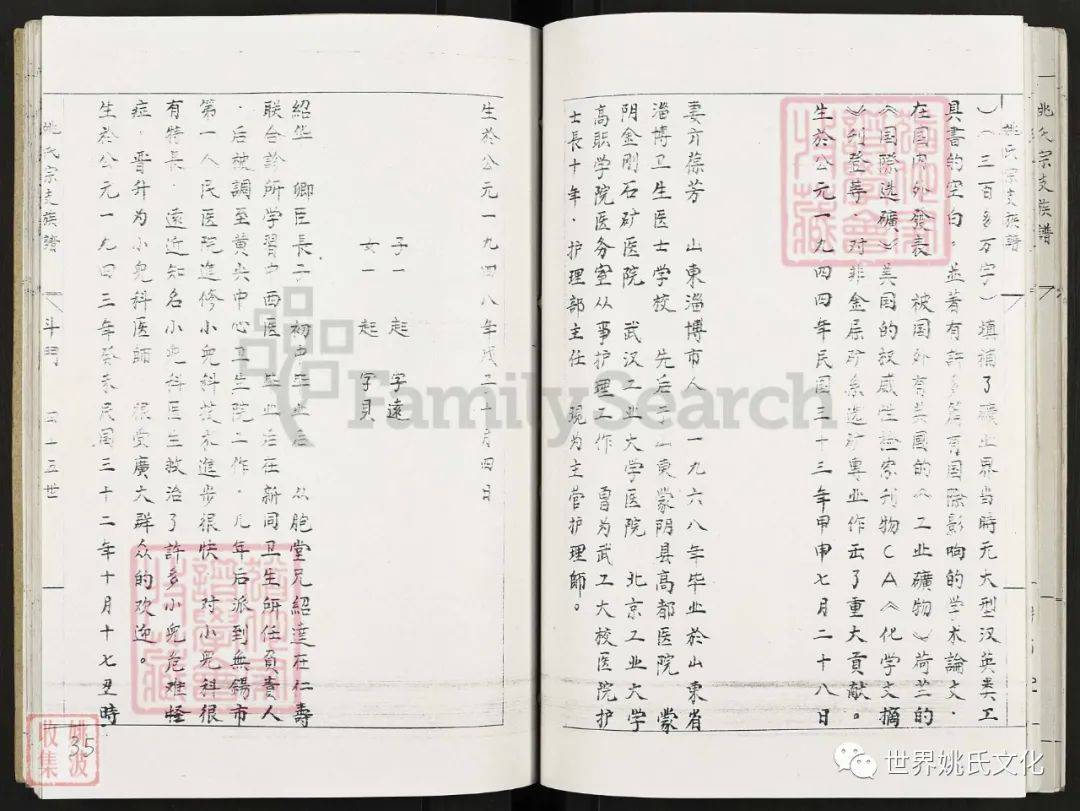 姚氏宗支族譜
姚氏宗支族譜
）（三百多万字）填補了礦业界当時无大型汉英类工
具書的空白。並著有許多篇有国际影响的学术論文．
在国内外發表 被国外有英國的《工业礦物》荷兰的
《国際选礦》美国的权威性检索刊物CA《化学文摘
》刊登等 对非金属矿系选矿專业作出了重大贡献。
生於公元一九四四年民国三十三年甲申七月二十八日
妻亓葆芳 山東淄博市人 一九六八年毕业於山東省
淄博卫生医士学校 先后于山東蒙阴县高都医院 蒙
阴金刚石矿医院 武汉工业大学医院 北京工业大学
高职学院医务室从事护理工作 曾为武工大校医院护
士長十年．护理部主任 現为主管护理師。
生於公元一九四八年戊子十月四日
子一 起 字遠
女一 起 字貝
紹华 卿臣長子 初中毕业后 从胞堂兄紹達在仁壽
联合診所学習中西医 毕业后在新同卫生所任負責人
．后被調至黄央中心卫生院工作．几年后派到無錫市
第一人民医院進修小兒科技术進步很快 对小兒科很
有特長．遠近知名小兒科医生救治了許多小兒危难怪
症．晋升为小兒科医師 很受廣大群众的欢迎。
生於公元一九四三年癸未民國三十二年十月十七丑時
姚氏宗支族譜
斗門
四十五世
FamilySearch
姚波
收集
35
世界姚氏文化